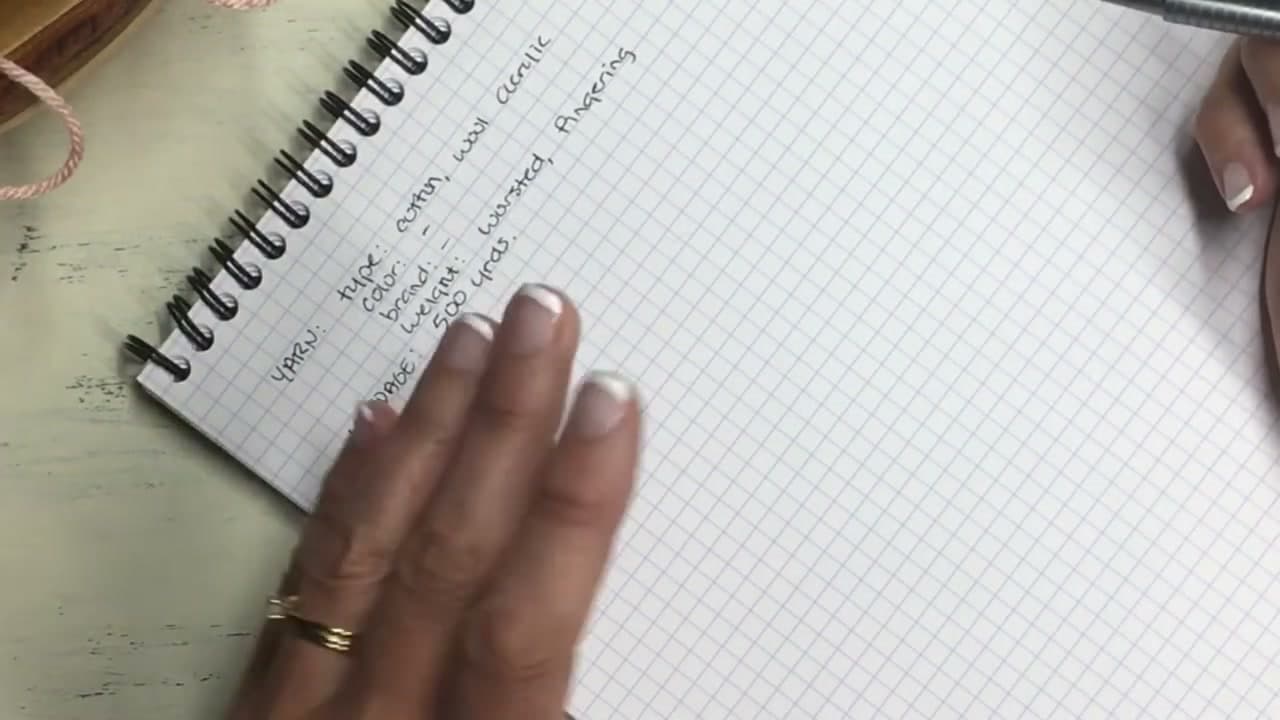 YARN: type: cotton, wool acrylic
color: -
brand: -
weight: worsted, fingering
500 yrds.